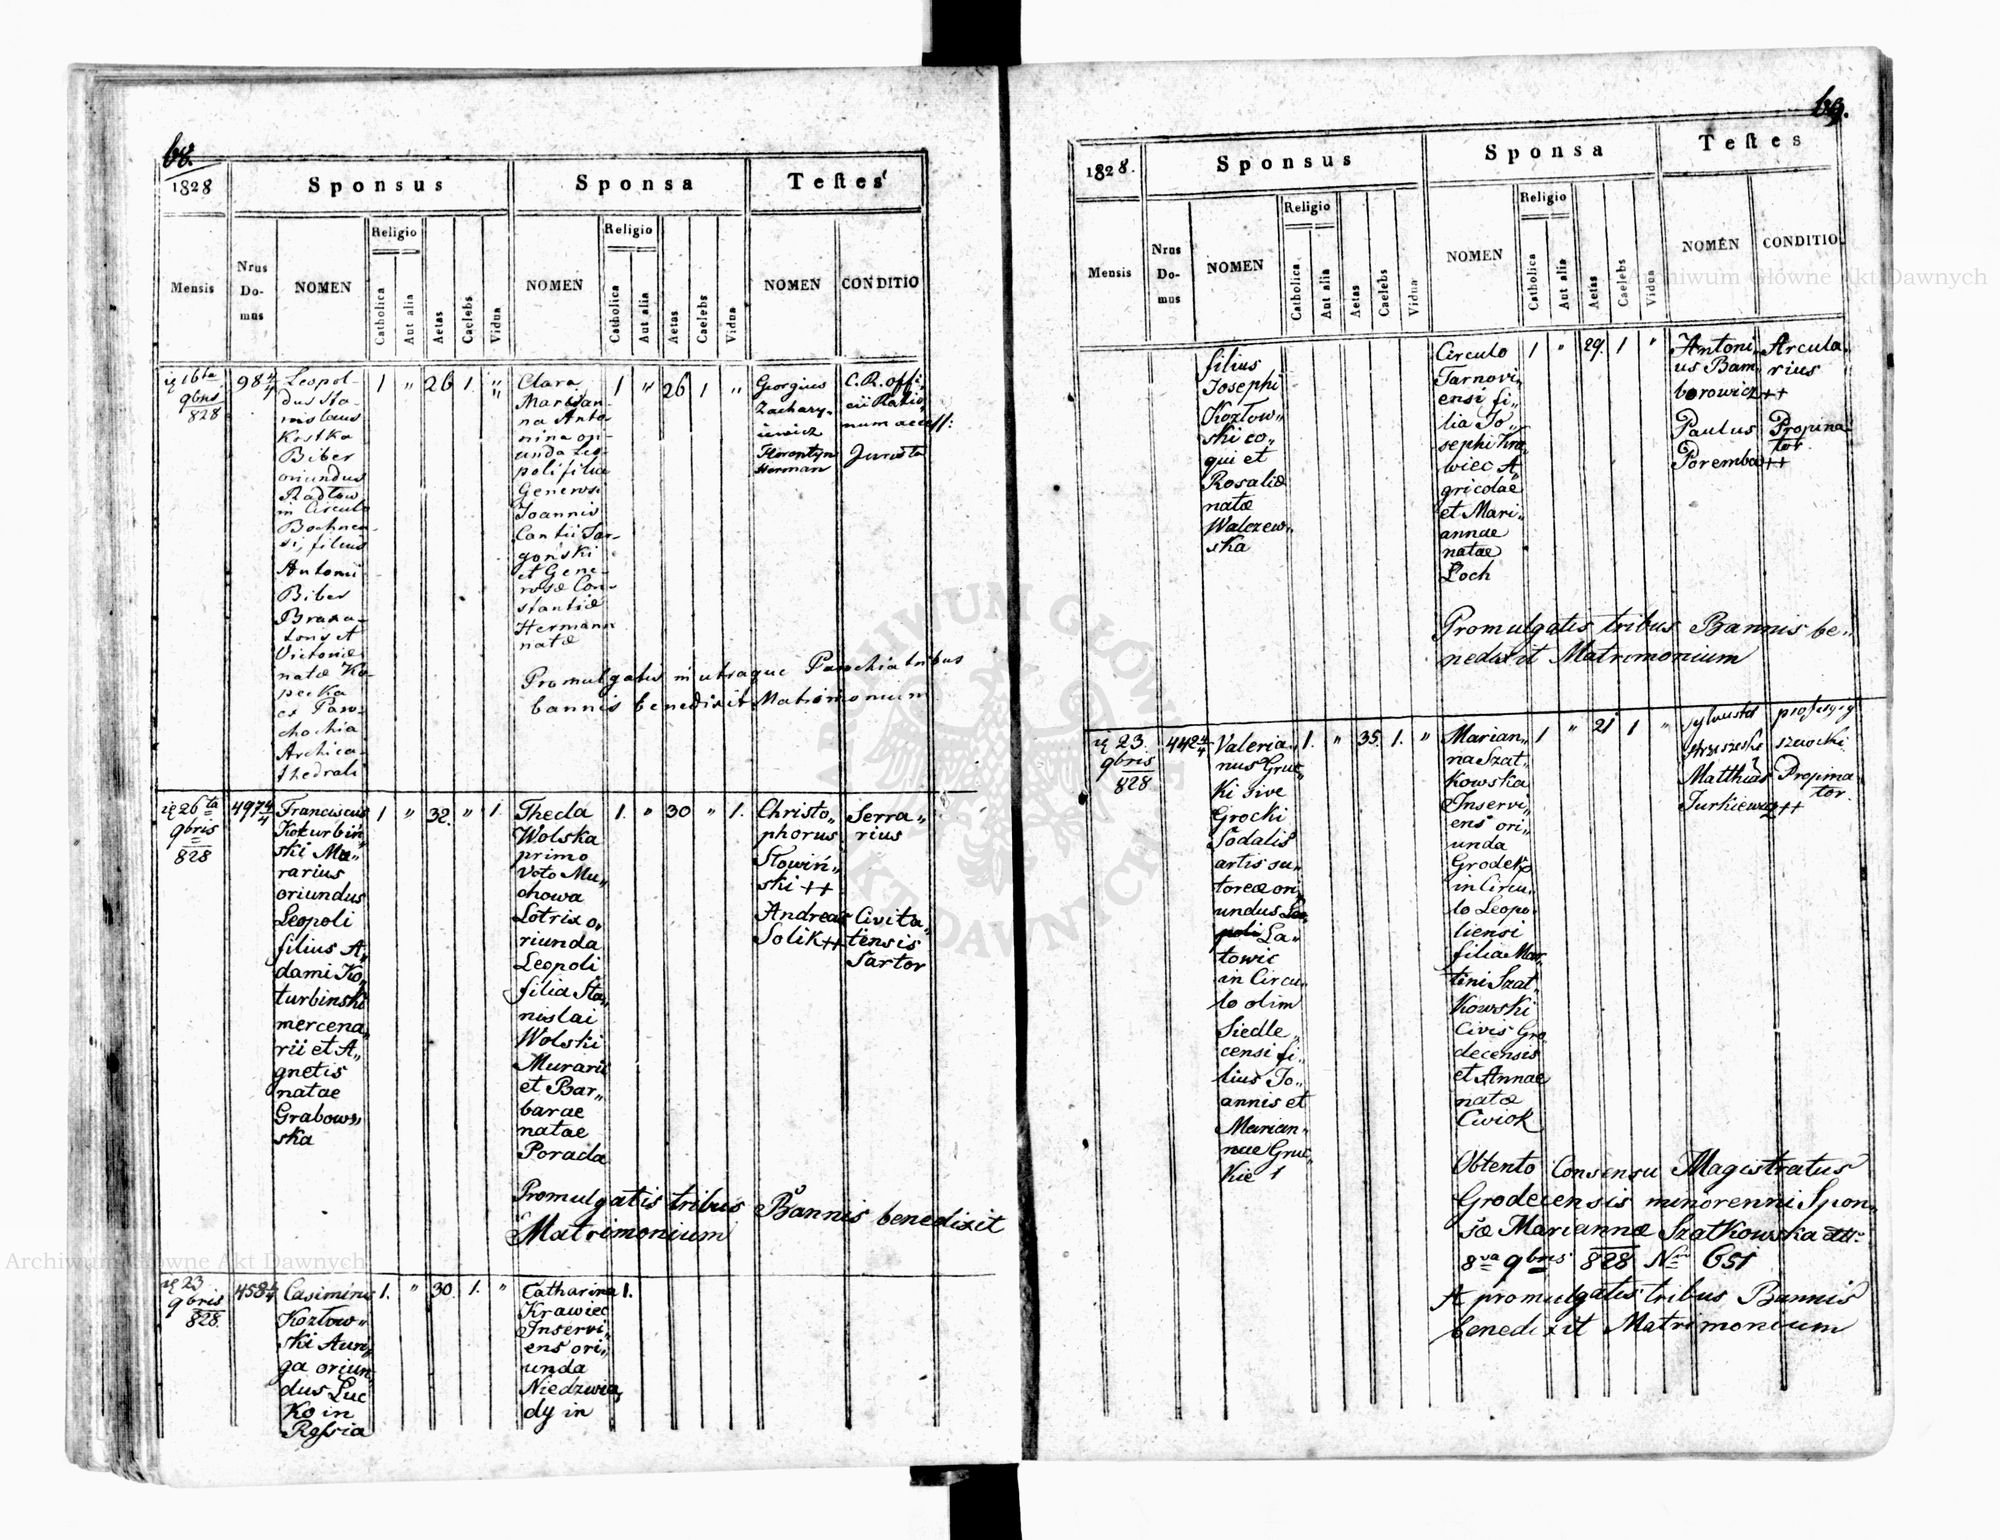 68.
1828
Sponsus
Sponsa
Testes
Mensis
Nrus
Do-
mus
NOMEN
Religio
Catholica
Aut alia
Aetas
Caelebs
Vidua
NOMEN
Religio
Catholica
Aut alia
Aetas
Caelebs
Vidua
NOMEN
CONDITIO
16ta
9bris
828
98 4/4
Leopol-
dus Sta-
nislaus
Kostka
Biber
oriundus
Radłow
in Circulo
Bochnen-
si, filius
Antonii
Biber
Braxa-
toris et
Victoriæ
natæ Ko-
pecka
ex Paro-
chochia
Archica-
thedrali
1 " 26 1. "
Clara
Marian-
na Anto-
nina ori-
unda Leo-
poli filia
Generosi
Joannis
Cantii Tar-
goński
et Gene-
rosæ Con-
stantiæ
Hermann
natæ
1 " 26 1 "
Georgius
Zachary-
iewicz
Florentyn
Herman
C. R. offi-
cii Ratio-
num access:
Jurista
Promulgatis in utraque Parochia tribus
bannis benedixit Matrimonium
26ta
9bris
828
497 4/4
Franciscus
Koturbiń
ski Mu„
rarius
oriundus
Leopoli
filius A„
dami Ko„
turbinski
mercena„
rii et A„
gnetis
natae
Grabow„
ska
1 " 32. " 1.
Thecla
Wolska
primo
voto Mu„
chowa
Lotrix o„
riunda
Leopoli
filia Sta„
nislai
Wolski
Murarii
et Bar„
barae
natae
Porada
1. " 30 " 1.
Christo„
phorus
Słowiń„
ski ++
Andreas
Solik ++
Serra„
rius
Civita„
tensis
Sartor
Promulgatis tribus Bannis benedixit
Matrimonium
23
9bris
828.
458 4/4
Casimirus
Kozłow„
ski Auri„
ga oriun„
dus Luc
ko in
Rossia
1. " 30. 1. "
Catharina
Krawiec
Inservi„
ens ori„
unda
Niedzwia„
dy in
1.
69.
1828.
Sponsus
Sponsa
Testes
Mensis
Nrus
Do-
mus
NOMEN
Religio
Catholica
Aut alia
Aetas
Caelebs
Vidua
NOMEN
Religio
Catholica
Aut alia
Aetas
Caelebs
Vidua
NOMEN
CONDITIO
filius
Josephi
Kozłow„
ski co„
qui et
Rosaliæ
natæ
Walczew„
ska
Circulo
Tarnovi„
ensi fi„
lia Jo„
sephi Kra„
wiec A„
gricolae
et Mari„
annae
natae
Łoch
1 " 29. 1 "
Antoni„
us Bam
borowicz ++
Paulus
Poremba ++
Arcula„
rius
Propina„
tor
Promulgatis tribus Bannis be„
nedixit Matrimonium
23.
9bris
828
442 4/4
Valeria„
nus Gruc„
ki sive
Grocki
Sodalis
artis su„
toreæ ori„
undus Leo„
poli La„
towic
in Circu„
lo olim
Siedle„
censi fi„
lius Jo„
annis et
Marian„
nae Gruc„
kie
1. " 35. 1. "
Marian„
na Szat„
kowska
Inservi„
ens ori„
unda
Grodek
in Circu„
lo Leopo„
liensi
filia Mar„
tini Szat„
kowski
Civis Gro
decensis
et Annae
natæ
Cwiok
1 " 21 1 "
Sylvester
Matthias
Turkiewicz ++
szewcki
Propina
tor.
Obtento Consensu Magistratus
Grodecensis minorenni Spon„
sæ Mariannæ Szatkowska ddto
8va 9bris 828 Nro 651
A promulgatis tribus Bannis
benedixit Matrimonium
Archiwum Główne Akt Dawnych
Archiwum Główne Akt Dawnych
ARCHIWUM GŁÓWNE AKT DAWNYCH